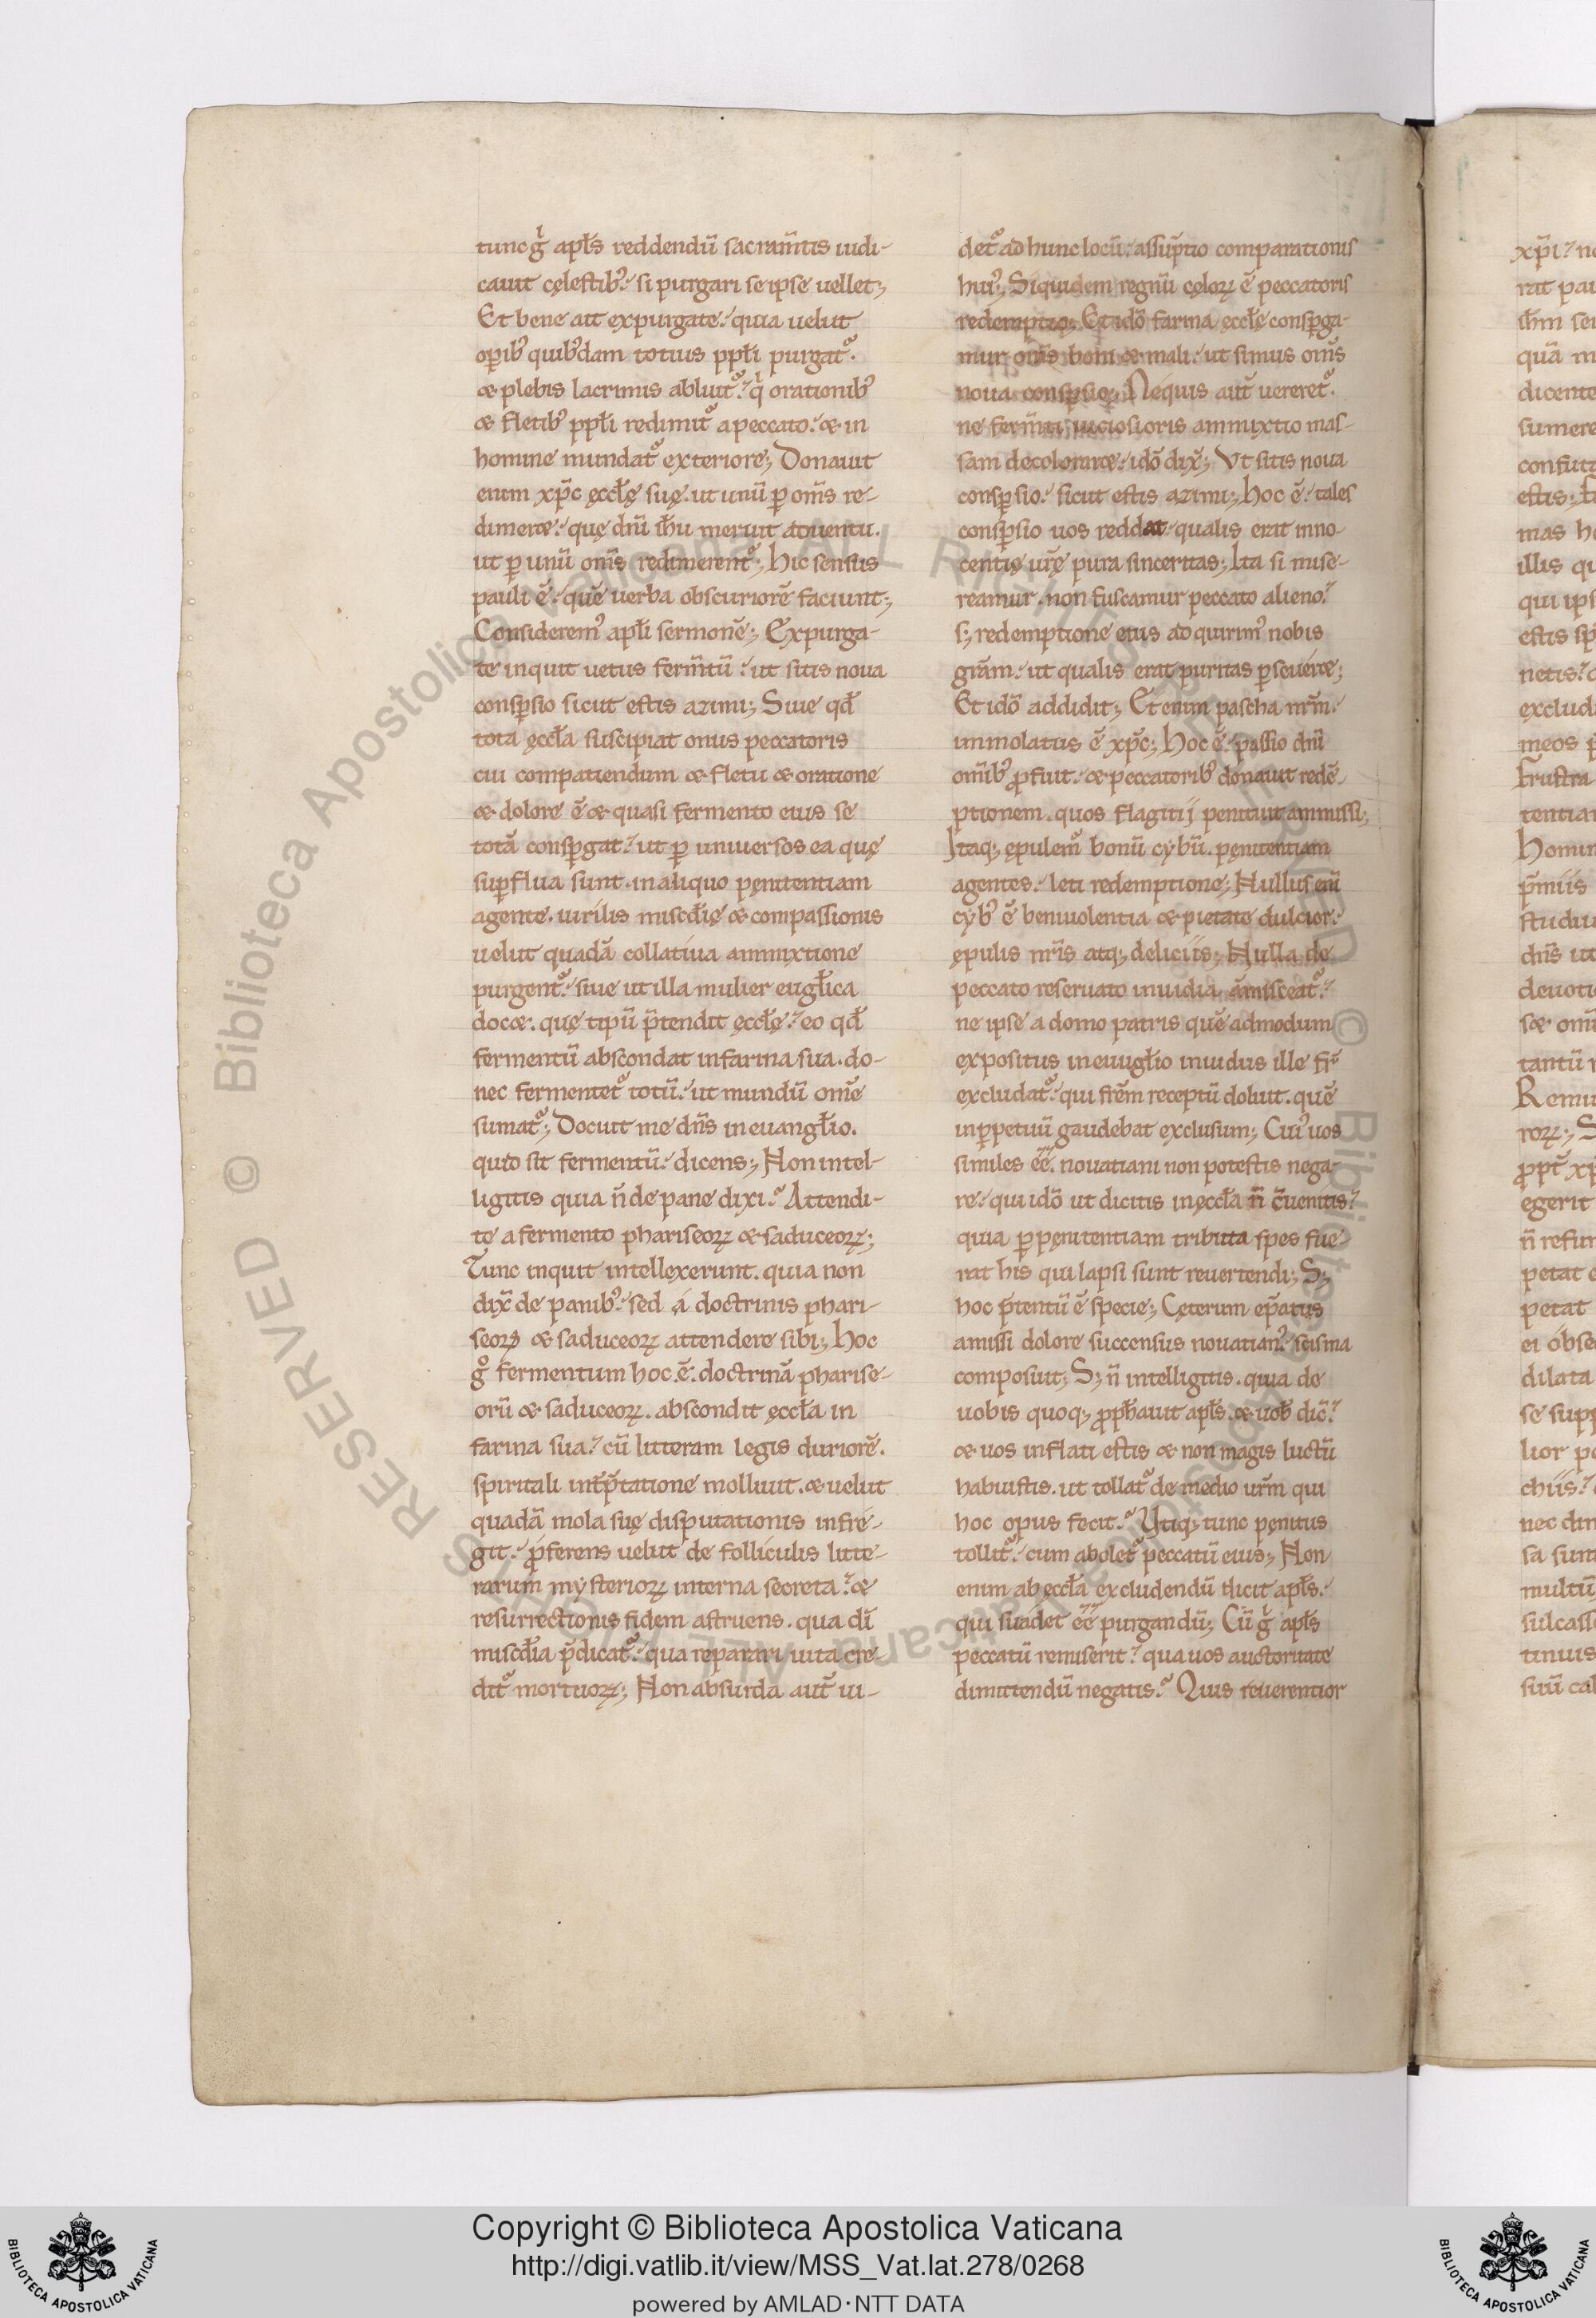 tunc gͥ apłs reddendū sacram̄tis iudi-
cauit cęlestib; si purgari se ipse uellet;
Et bene ait expurgate. quia uelut
oꝑib; quib;dam totius ppłi purgat᷑.
& plebis lacrimis abluit᷑. qͥ orationib;
& fletib; ppłi redimit᷑ a peccato. & in
homine mundat᷑ exteriore; Donauit
enim xp̄c ęccłę suę. ut unū ꝑ om̄s re-
dimeret. quę dn̄i ih̄u meruit aduentū.
ut ꝑ unū om̄s redimerent᷑; Hic sensus
pauli ē. quē uerba obscuriorē faciunt;
Consideremꝰ apłi sermonē; Expurga-
te inquit uetus ferm̄tū. ut sitis noua
consꝑsio sicut estis azimi; Siue qđ
tota ęccła suscipiat onus peccatoris
cui compatiendum & fletu & oratione
& dolore ē & quasi fermento eius se
totā consꝑgat. ut ꝑ uniuersos ea quę
suꝑflua sunt in aliquo pęnitentiam
agente. uirilis miscđię & compassionis
uelut quadā collatiua ammixtione
purgent᷑. siue ut illa mulier eugłica
docet. quę tipū p̄tendit ęccłę. eo qđ
fermentū abscondat in farina sua. do-
nec fermentet᷑ totū. ut mundū om̄e
sumat᷑; Docuit me dn̄s in euangłio.
quid sit fermentū. dicens; Non intel-
ligitis quia n̄ de pane dixi? Attendi-
te a fermento phariseoꝝ & saduceoꝝ;
Tunc inquit intellexerunt. quia non
dix̄ de panib;. sed á doctrinis phari-
seoꝝ & saduceoꝝ attendere sibi; Hoc
gͦ fermentum hoc. ē. doctrinā pharise-
orū & saduceoꝝ. abscondit ęccła in
farina sua. cū litteram legis duriorē.
spiritali int̄p̄tatione molliuit. & uelut
quadā mola suę disputationis infre-
git. ꝓferens uelut de folliculis litte-
rarum mysterioꝝ interna secreta. &
resurrectionis fidem astruens. qua dī
miscđia p̄dicat᷑. qua reparari uita cre-
dit᷑ mortuoꝝ; Non absurda aut̄ ui-
det᷑ ad hunc locū. assūptio comparationis
huiꝰ; Siquidem regnū cęloꝝ ē peccatoris
redemptio; Et idō farina ęccłę consꝑga-
mur om̄s boni & mali. ut simus om̄s
noua consꝑsio; Nequis aut̄ uereret᷑.
ne ferm̄ti uiciosioris ammixtio mas-
sam decoloraret. idō dix̄; Vt sitis noua
consꝑsio. sicut estis azimi; Hoc ē. tales
consꝑsio uos reddat. qualis erat inno-
centię ur̄ę pura sinceritas; Ita si mise-
reamur. non fuscamur peccato alieno.
s; redemptione eius adquirimꝰ nobis
gr̄am. ut qualis erat puritas ꝑseueret;
Et idō addidit; Et enim pascha nr̄m.
immolatus ē xp̄c; Hoc ē. passio dn̄i
om̄ib; ꝓfuit. & peccatorib; donauit redē-
ptionem. quos flagitii penituit ammissi;
Itaq; ępulem᷑ bonū cybū. pęnitentiam
agentes. leti redemptione; Nullus eni
cybꝰ ē beniuolentia & pietate dulcior.
ępulis nr̄is atq; deliciis; Nulla de
peccato reseruato inuidia āmisceat᷑.
ne ipse a domo patris quē admodum
expositus in euugłio inuidus ille fr̄
excludat᷑. qui fr̄em receptū doluit. quē
inꝑpetuū gaudebat exclusum; Cuiꝰ uos
similes ēē. nouatiani non potestis nega-
re. qui idō ut dicitis in ęccła n̄ c̄uenitis.
quia ꝑ pęnitentiam tributa spes fue-
rat his qui lapsi sunt reuertendi; S;
hoc p̄tentū ē specie; Cęterum ep̄atus
amissi dolore succensus nouatianꝰ. scisma
composuit; S; n̄ intelligitis. quia de
uobis quoq; ꝓph̄auit apłs. & uob̄ dic̄.
& uos inflati estis & non magis luctū
habuistis. ut tollat᷑ de medio ur̄m qui
hoc opus fecit? Vtiq; tunc pęnitus
tollit᷑. cum abolet᷑ peccatū eius; Non
enim ab ęccła excludendū dicit apłs.
qui suadet ēē purgandū; Cū gͥ apłs
peccatū remiserit. qua uos auctoritate
dimittendū negatis? Quis reuerentior
Copyright © Biblioteca Apostolica Vaticana
http://digi.vatlib.it/view/MSS_Vat.lat.278/0268
powered by AMLAD·NTT DATA